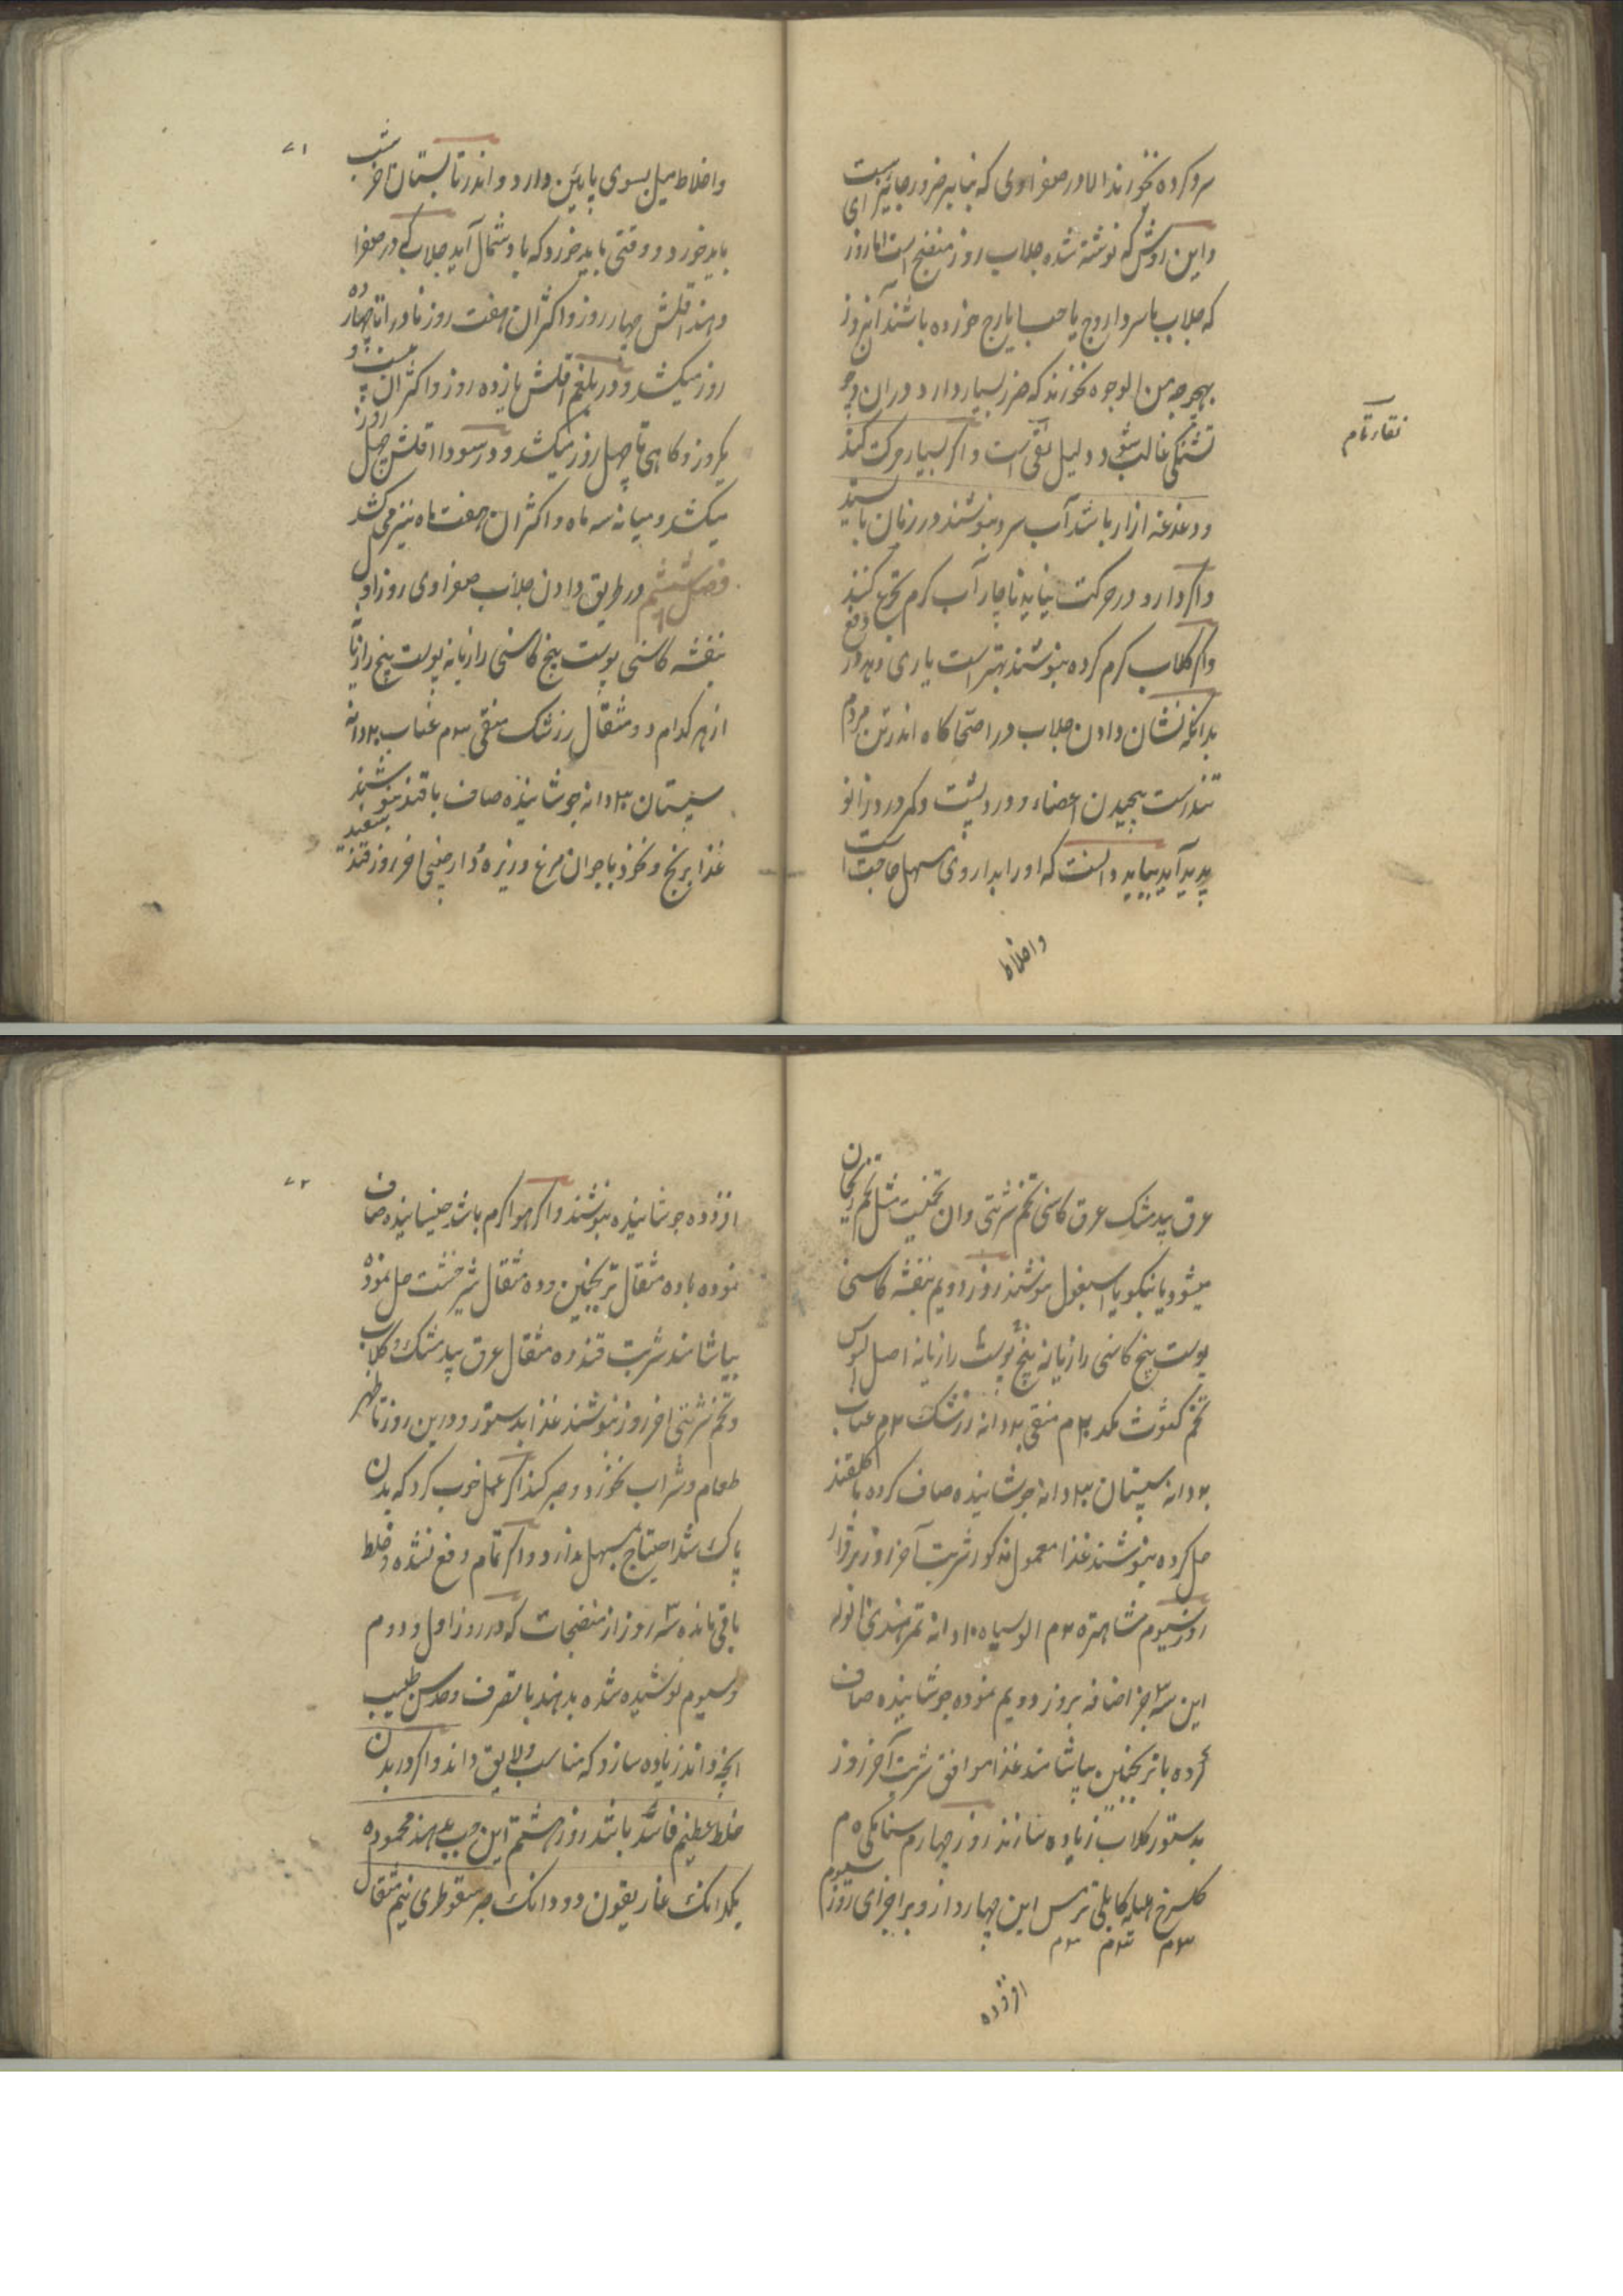 سرد کرده نخورند الا در صفراوی که بنابر ضرور جایز است
و این روش که نوشته شده جلاب روز منضج است اما روز
که جلاب با سر داروج یا حب ایارج خورده باشند آنروز
بهیچ وجه من الوجوه نخورند که ضرر بسیار دارد و در ان
تشنگی غالب شود و دلیل نقی است و اگر بسیار حرکت کند
و دغدغه ازار باشد آب سرد بنوشند در زمان باستد
و اگر دارو در حرکت نیاید ناچار آب گرم تجرع کنند
و اگر گلاب گرم کرده بنوشند بهتر است یاری دهد در دفع
بدانکه نشان دادن جلاب در امتحا کاه اندر تن مردم
تندرست پیچیدن اعضاء و درد پشت و کمر و درد زانو
پدید آید بباید دانست که او را بداروی مسهل حاجت است
واخلاط
نقار تام
۷۱
واخلاط میل بسوی پایین دارد و اندر تابستان آخر شب
باید خورد و وقتی باید خورد که باد شمال آید جلاب که در صفرا
دهند اقلش چهار روز و اکثر ان هفت روز نادرا تا چهارده
روز میکشد و در بلغم اقلش یازده روز و اکثر ان بیست و
یکروز و کاهی تا چهل روز میکشد و در سودا اقلش چهل روز
میکشد و میانه سه ماه و اکثر ان هفت ماه نیز می کشد
فصل ششم در طریق دادن جلاب صفراوی روز اول
بنفشه کاسنی پوست بیخ کاسنی رازیانه پوست بیخ رازیانه
از هر کدام دو مثقال زرشک منقی ۳م عناب ۲۰ دانه
سپستان ۳۰ دانه جوشانیده صاف با قند بنوشند
غذا برنج و نخود با جوان مرغ و زیره و دارچینی اخر روز قند سفید
عرق بیدمشک عرق کاسنی تخم شربتی و ان تخمیست مثل تخم ریحان
میشود یا بنکو یا اسبغول بنوشند روز دویم بنفشه کاسنی
پوست بیخ کاسنی رازیانه بیخ پوست رازیانه اصل السوس
تخم کثوث هکد ۲م منقی ۲۰ دانه زرشک ۳م عناب
۲۰ دانه سپستان ۳۰ دانه جوشانیده صاف کرده با گلقند
حل کرده بنوشند غذا معمول مذکور شربت آخر روز برقرار
روز سیوم شاهتره ۳م الو سیاه ۱۰ دانه تمر هندی
این سه جز اضافه بروز دویم نموده جوشانیده صاف
کرده با ترنجبین بیاشامند غذا موافق شربت آخر روز
بدستور گلاب زیاده سازند روز چهارم سنا مکی ۵م
گلسرخ هلیله کابلی تربس این چهار دارو بر اجزای روز سیوم
۳م ۳م ۲م
افزوده
۷۲
افزوده جوشانیده بنوشند و اگر هوا گرم باشد خیسانیده صاف
نموده با ده مثقال ترنجبین و ده مثقال شیرخشت حل نموده
بیاشامند شربت قند ده مثقال عرق بیدمشک و گلاب
و تخم شربتی اخر روز بنوشند غذا بدستور و درین روز تا ظهر
طعام و شراب نخورد و صبر کند اگر عمل خوب کرد که بدن
پاک شد احتیاج بمسهل ندارد و اگر تمام دفع نشده و خلط
باقی مانده سه روز از منضجات که در روز اول و دوم
و سیوم نوشیده شده بدهند با تصرف و حدس طبیب
انچه داند زیاده سازد که مناسب و لایق داند و اگر در بدن
خلط عظیم فاسد باشد روز هشتم این حب بدهند محموده
یکدانک غاریقون دو دانک صبر سقوطری نیم مثقال